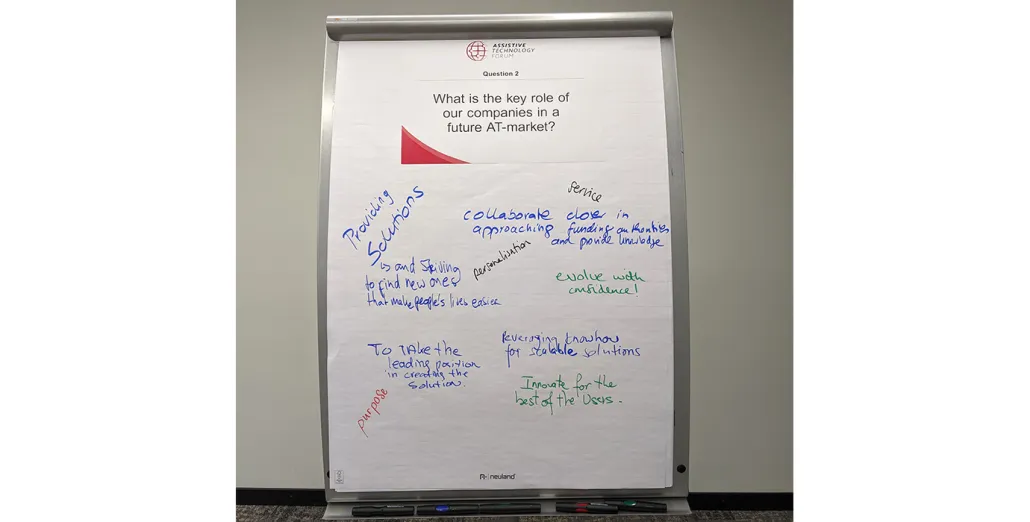 ASSISTIVE
TECHNOLOGY
FORUM
Question 2
What is the key role of
our companies in a
future AT-market?
Providing
Solutions
and Striving
to find new ones
that make people's lives easier
service
collaborate closer in
approaching funding authorities
and provide knowledge
personalisation
evolve with
confidence!
To TAke the
leading position
in creating the
Solution.
leveraging knowhow
for scalable solutions
Innovate for the
best of the Users.
purpose
neuland